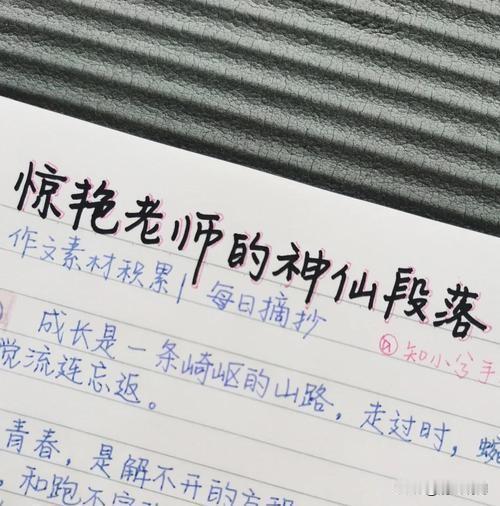 惊艳老师的神仙段落
作文素材积累| 每日摘抄
@知小兮手
成长是一条崎岖的山路，走过时，蜿
觉流连忘返。
青春，是解不开的方程
和跑不完